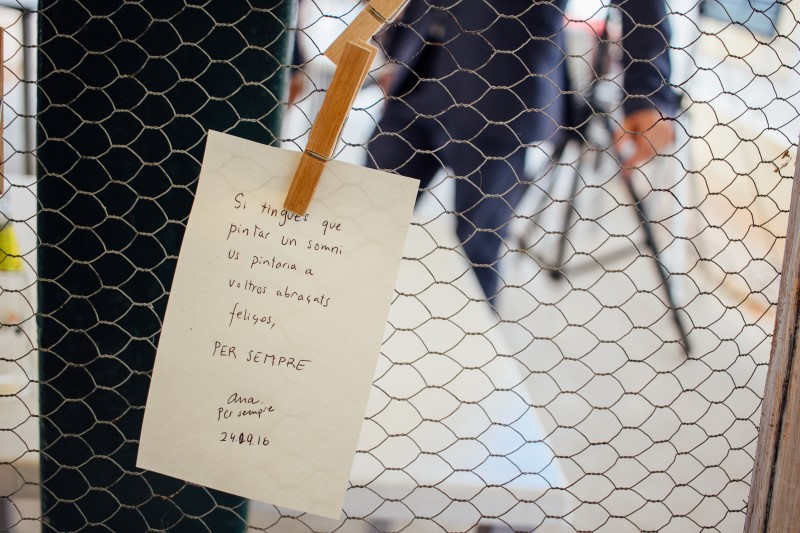 Si tingués que
pintar un somni
Us pintaria a
voltros abraçats
feliços,
PER SEMPRE
ana.
per sempre
24.09.16